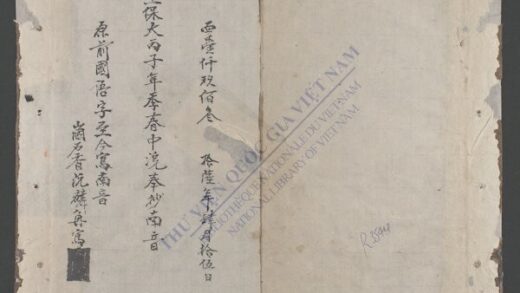 西壹仟玖佰叁 拾陸年肆月拾伍日
保大丙子年季春中浣奉抄南音
原前國語字至今寫南音
石香 寫
THƯ VIỆN QUỐC GIA VIỆT NAM
BIBLIOTHÈQUE NATIONALE DU VIETNAM
NATIONAL LIBRARY OF VIETNAM